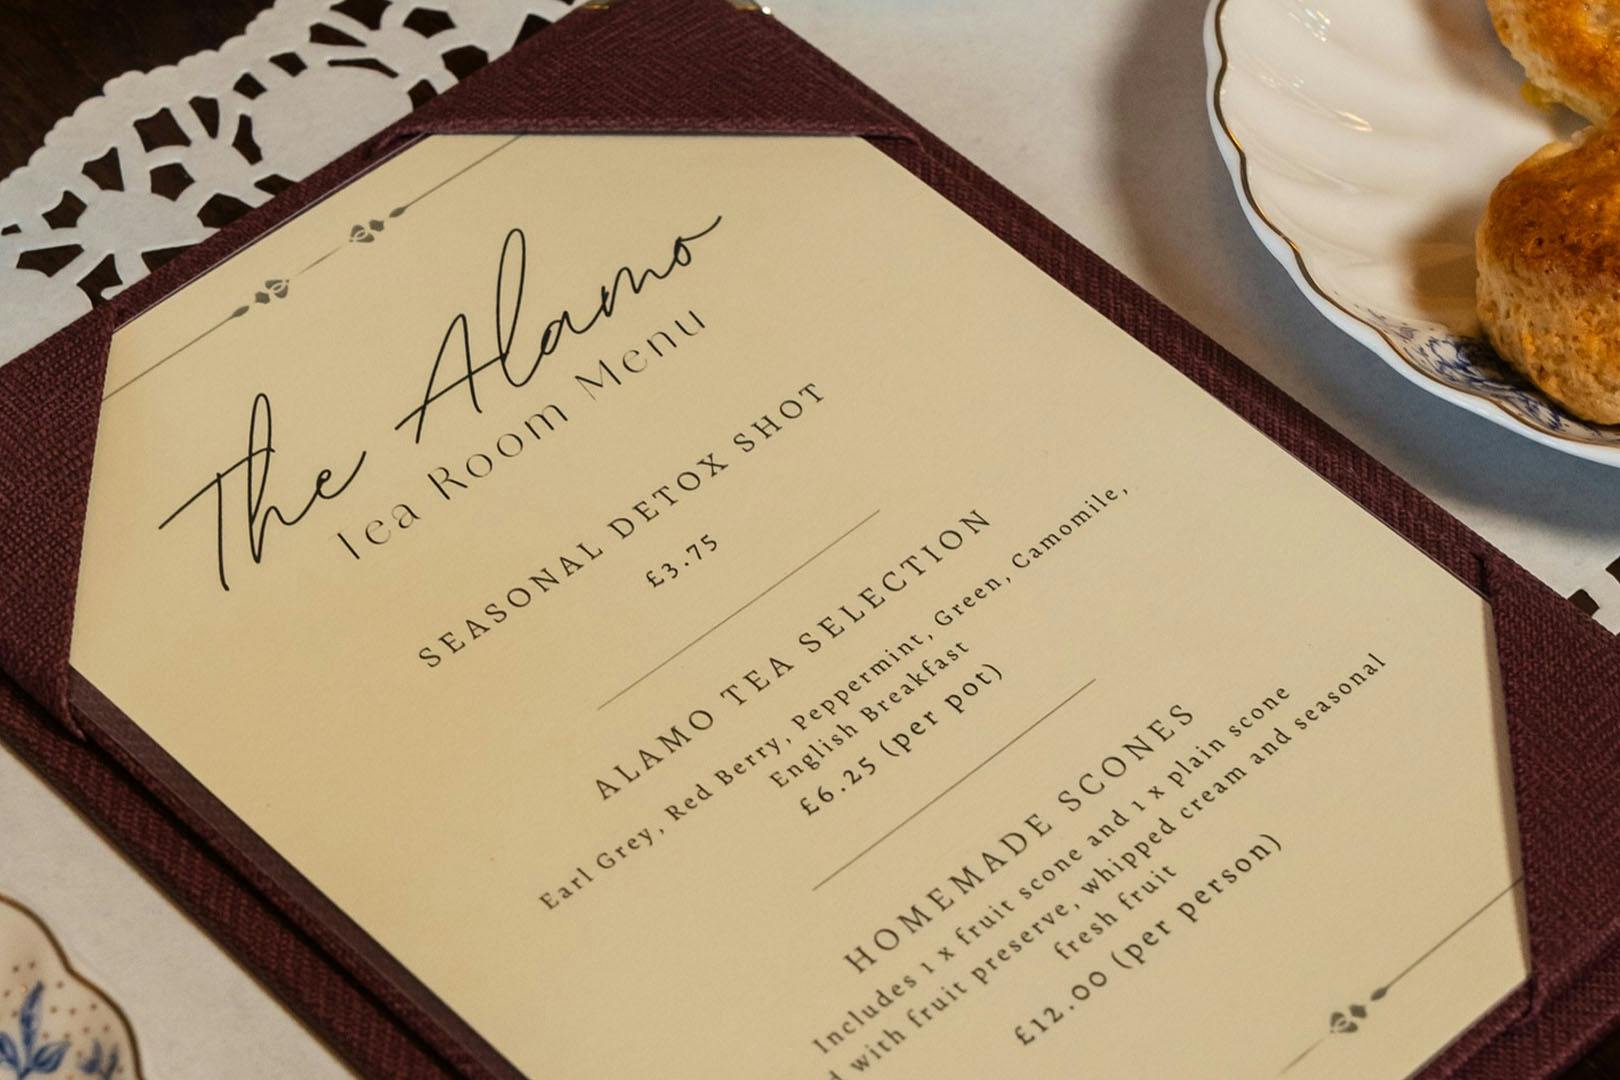 The Alamo
Tea Room Menu
SEASONAL DETOX SHOT
£3.75
ALAMO TEA SELECTION
Earl Grey, Red Berry, Peppermint, Green, Camomile,
English Breakfast
£6.25 (per pot)
HOMEMADE SCONES
Includes 1 x fruit scone and 1 x plain scone
with fruit preserve, whipped cream and seasonal
fresh fruit
£12.00 (per person)